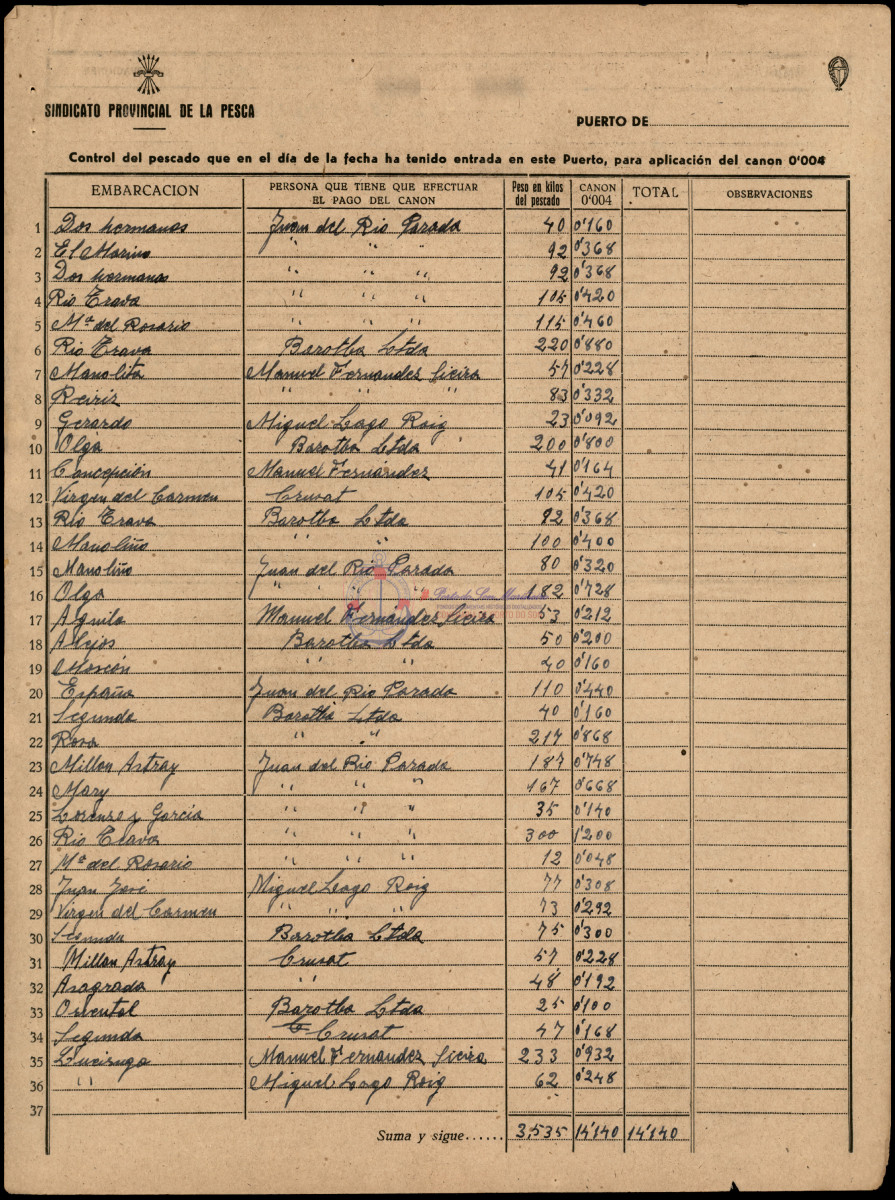 SINDICATO PROVINCIAL DE LA PESCA
PUERTO DE
Control del pescado que en el día de la fecha ha tenido entrada en este Puerto, para aplicación del canon 0'004
EMBARCACION PERSONA QUE TIENE QUE EFECTUAR EL PAGO DEL CANON Peso en kilos del pescado CANON 0'004 TOTAL OBSERVACIONES
1 Dos hermanos Juan del Rio Parada 40 0'160
2 El Marino " " " 92 0'368
3 Dos hermanos " " " 92 0'368
4 Rio Trava " " " 105 0'420
5 Mª del Rosario " " " 115 0'460
6 Rio Trava Barotba Ltda 220 0'880
7 Manolita Manuel Fernandez Sieira 57 0'228
8 Reiriz " " " 83 0'332
9 Gerardo Miguel Lago Roig 23 0'092
10 Olga Barotba Ltda 200 0'800
11 Concepción Manuel Fernandez 41 0'164
12 Virgen del Carmen Crusat 105 0'420
13 Rio Trava Barotba Ltda 92 0'368
14 Manoliño " " 100 0'400
15 Manoliño Juan del Rio Parada 80 0'320
16 Olga " " " 182 0'728
17 Aguila Manuel Fernandez Sieira 53 0'212
18 Barotba Ltda 50 0'200
19 " " 40 0'160
20 España Juan del Rio Parada 110 0'440
21 Segunda Barotba Ltda 40 0'160
22 Rosa " " 217 0'868
23 Millan Astray Juan del Rio Parada 187 0'748
24 Mary " " " 167 0'668
25 Lorenzo y Garcia " " " 35 0'140
26 Rio Trava " " " 300 1'200
27 Mª del Rosario " " " 12 0'048
28 Juan José Miguel Lago Roig 77 0'308
29 Virgen del Carmen " " " 73 0'292
30 Segunda Barotba Ltda 75 0'300
31 Millan Astray Crusat 57 0'228
32 Asagrada " 48 0'192
33 Oriental Barotba Ltda 25 0'100
34 Segunda Crusat 47 0'168
35 Manuel Fernandez Sieira 233 0'932
36 " Miguel Lago Roig 62 0'248
37
Suma y sigue...... 3.535 14'140 14'140